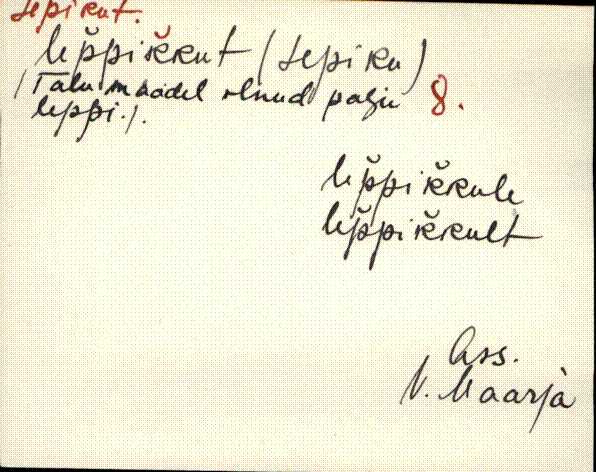 Lepikut.
lep̌piǩkut (Lepiku)
(Talu maadel olnud palju 8.
leppi.).
lep̌piǩkule
lep̌piǩkult
Ass.
V. Maarja